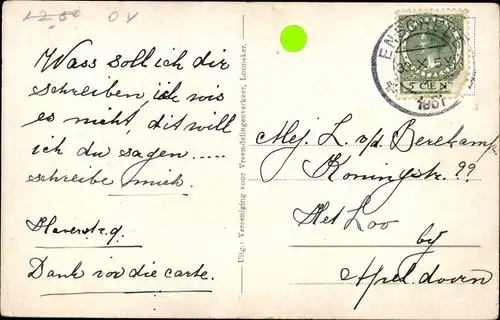 L2.50 OV
Wass soll ich dir
schreiben, ich wis
es nicht, dit will
ich du sagen.....
schreibe mich.
Haverstr. 9.
Dank vor die carte.
Uitg.: Vereeniging voor Vreemdelingenverkeer, Lonneker.
EN
5 CEN
1951
Mej. L. v/d Berekamp
Koningstr. 99
Het Loo
by
Apeldoorn